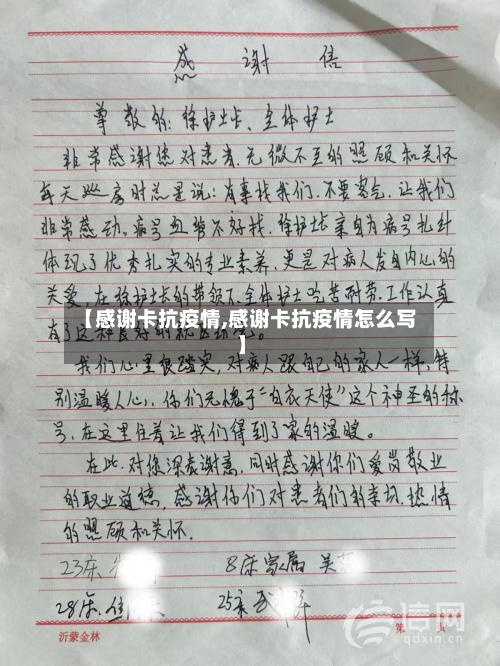 感谢信
尊敬的:徐护士长、全体护士
非常感谢您对患者无微不至的照顾和关怀
每天巡房时总是说:有事找我们.不要客气.让我们
非常感动。病号血管不好找.徐护士长亲自为病号扎针
体现了优秀扎实的专业素养,更是对病人发自内心的
关爱,在徐护士长的带领下,全体护士吃苦耐劳.工作认真
【感谢卡抗疫情,感谢卡抗疫情怎么写
】
有了这种良好的
我们心里很踏实,对病人跟自己的家人一样,特
别温暖人心,你们无愧于“白衣天使”这个神圣的称
号,在这里住着让我们得到了家的温暖。
在此.对您深表谢意,同时感谢你们爱岗敬业
的职业道德,感谢你们对患者们的亲切.热情
的照顾和关怀.
23床 8床家属 吴
28床. 25床
沂蒙金林 第 页
信网
qdxin.cn